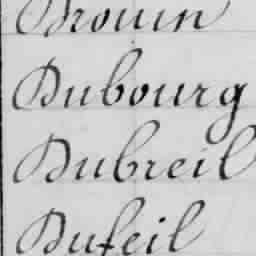 Drouin
Dubourg
Dubreil
Dufeil